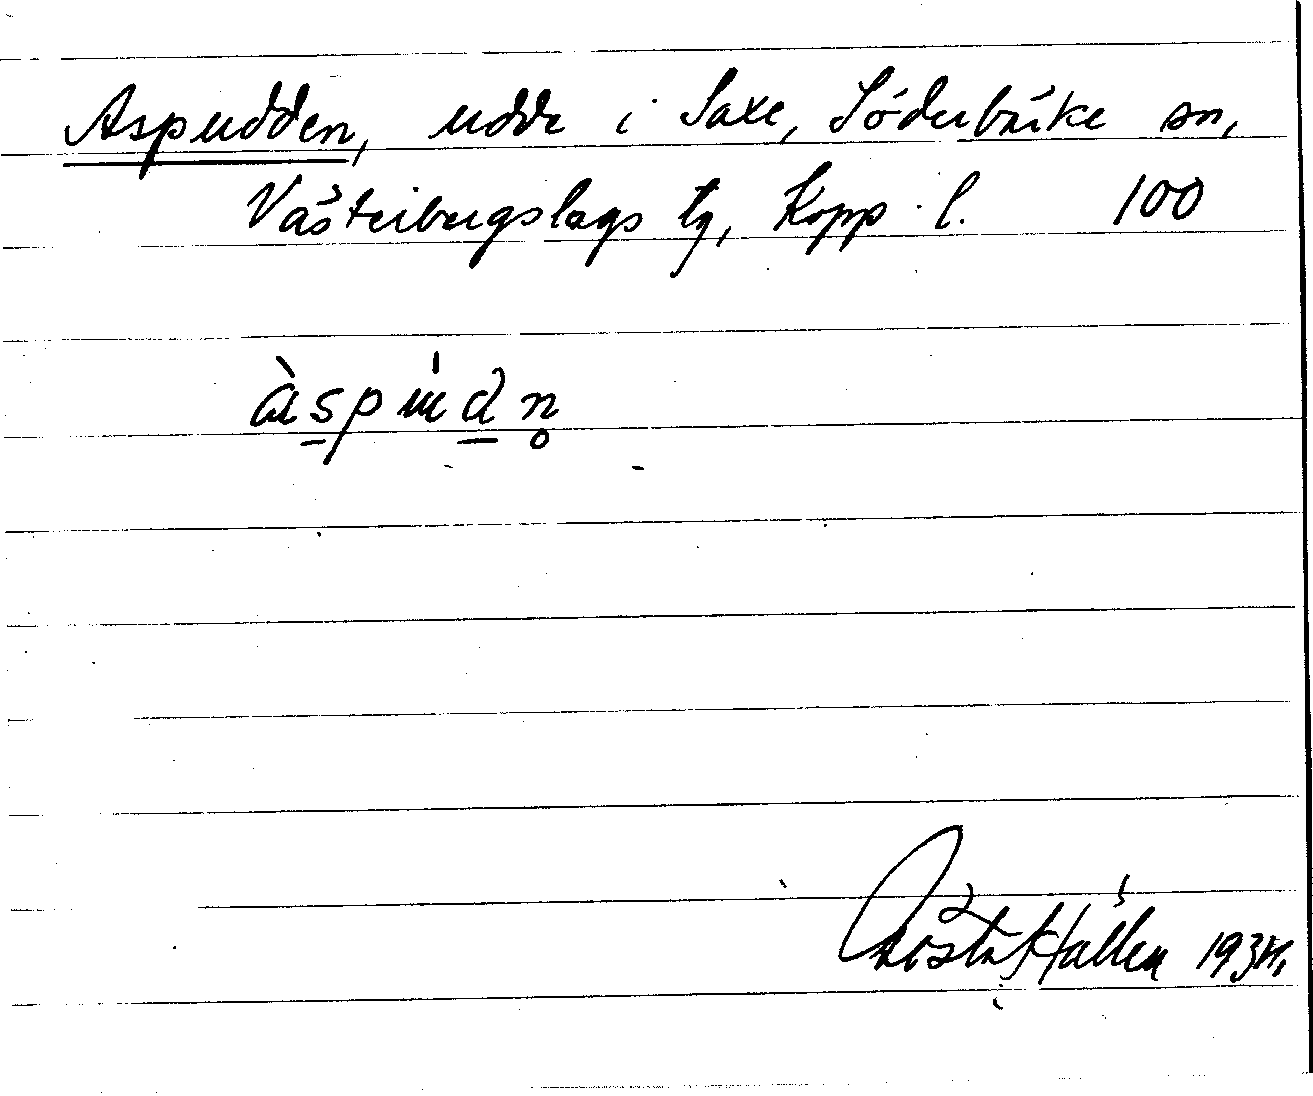 Aspudden, udde i Saxe, Söderbärke sn,
Västerbergslags tg, Kopp. l. 100
àspúdn̥
Gösta Hallén 1934.